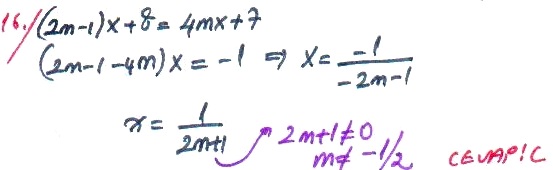 16./ (2m-1)x+8= 4mx+7
(2m-1-4m)x = -1 ⇒ x= -1/-2m-1
x= 1/2m+1 2m+1≠0
m≠ -1/2 CEVAP: C